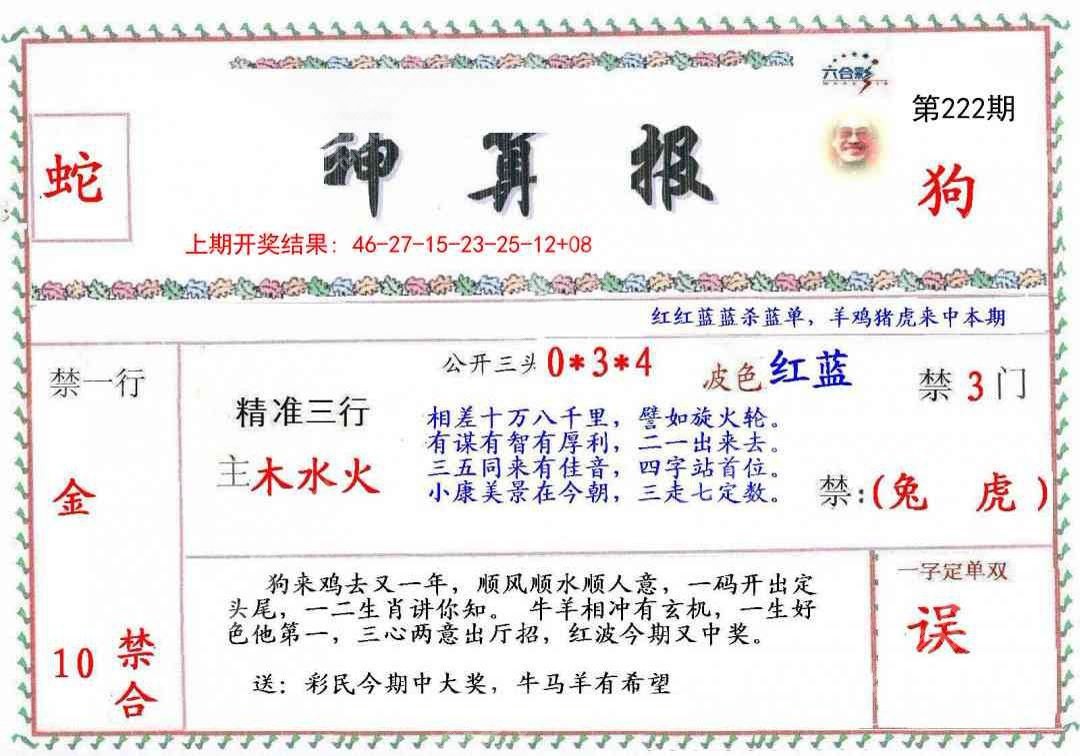 六合彩
第222期
蛇
神算报
狗
上期开奖结果：46-27-15-23-25-12+08
红红蓝蓝杀蓝单，羊鸡猪虎来中本期
禁一行
公开三头 0*3*4
波色 红蓝
禁 3 门
精准三行
相差十万八千里，譬如旋火轮。
有谋有智有厚利，二一出来去。
三五同来有佳音，四字站首位。
小康美景在今朝，三走七定数。
主木水火
金
禁：(兔 虎)
狗来鸡去又一年，顺风顺水顺人意，一码开出定
头尾，一二生肖讲你知。 牛羊相冲有玄机，一生好
色他第一，三心两意出厅招，红波今期又中奖。
送：彩民今期中大奖，牛马羊有希望
一字定单双
误
10 禁合